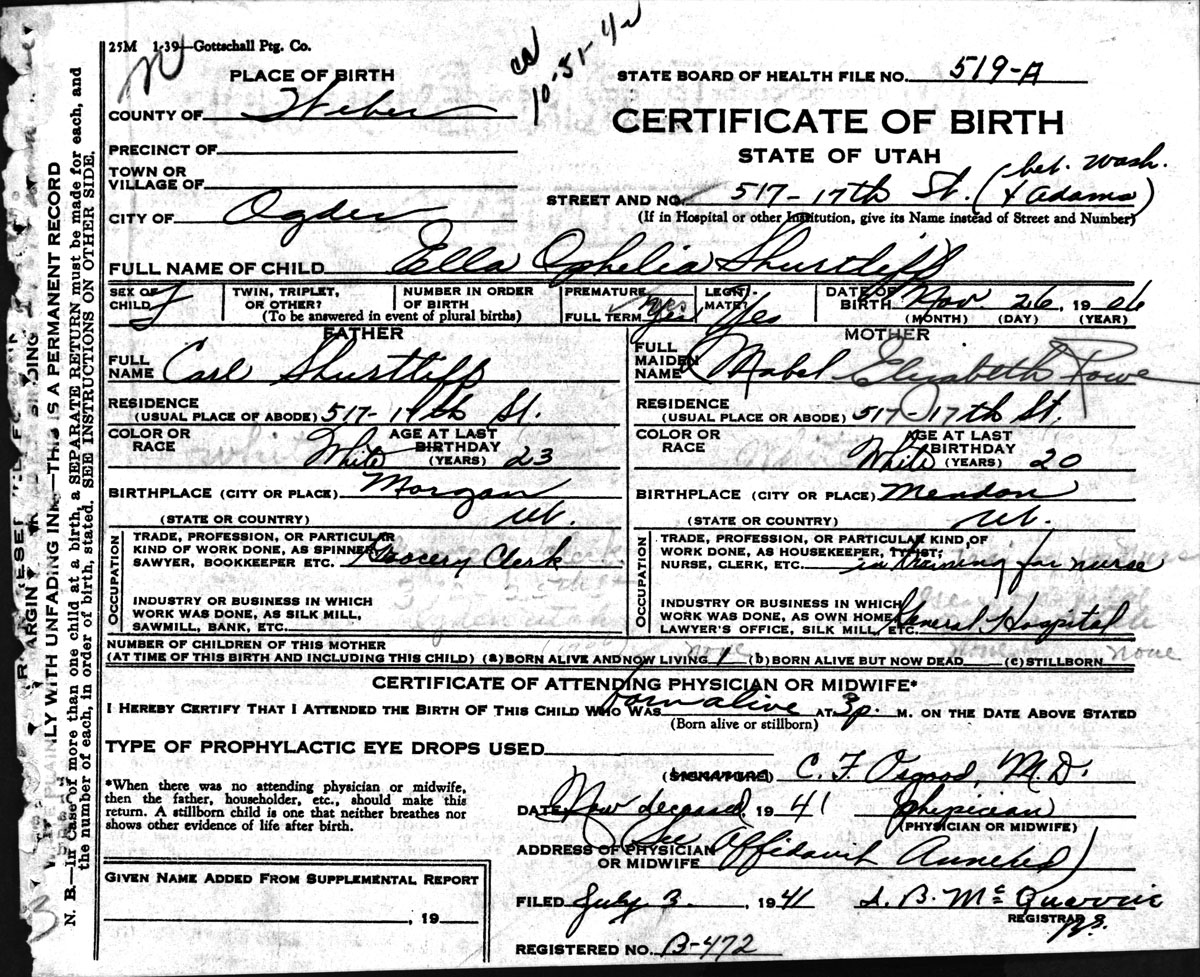 25M 1-39—Gottschall Ptg. Co.
10-51-
STATE BOARD OF HEALTH FILE NO. 519-A
PLACE OF BIRTH
COUNTY OF Weber
CERTIFICATE OF BIRTH
PRECINCT OF
STATE OF UTAH
TOWN OR
VILLAGE OF
STREET AND NO. 517-17th St. (bet. Wash. & Adams)
CITY OF Ogden
(If in Hospital or other Institution, give its Name instead of Street and Number)
FULL NAME OF CHILD Ella Ophelia Shurtliff
SEX OF CHILD F
TWIN, TRIPLET, OR OTHER?
NUMBER IN ORDER OF BIRTH
(To be answered in event of plural births)
PREMATURE
FULL TERM Yes
LEGITIMATE? Yes
DATE OF BIRTH Nov. 26, 1906
(MONTH) (DAY) (YEAR)
FATHER
FULL NAME Carl Shurtliff
RESIDENCE
(USUAL PLACE OF ABODE) 517-17th St.
COLOR OR RACE White AGE AT LAST BIRTHDAY (YEARS) 23
BIRTHPLACE (CITY OR PLACE) Morgan
(STATE OR COUNTRY) Ut.
OCCUPATION
TRADE, PROFESSION, OR PARTICULAR
KIND OF WORK DONE, AS SPINNER
SAWYER, BOOKKEEPER ETC. Grocery Clerk
INDUSTRY OR BUSINESS IN WHICH
WORK WAS DONE, AS SILK MILL,
SAWMILL, BANK, ETC.
MOTHER
FULL MAIDEN NAME Mabel Elizabeth Rowe
RESIDENCE
(USUAL PLACE OR ABODE) 517-17th St.
COLOR OR RACE White AGE AT LAST BIRTHDAY (YEARS) 20
BIRTHPLACE (CITY OR PLACE) Mendon
(STATE OR COUNTRY) Ut.
OCCUPATION
TRADE, PROFESSION, OR PARTICULAR KIND OF
WORK DONE, AS HOUSEKEEPER, TYPIST,
NURSE, CLERK, ETC. in training for nurse
INDUSTRY OR BUSINESS IN WHICH
WORK WAS DONE, AS OWN HOME
LAWYER'S OFFICE, SILK MILL, ETC. General Hospital
NUMBER OF CHILDREN OF THIS MOTHER
(AT TIME OF THIS BIRTH AND INCLUDING THIS CHILD) (a) BORN ALIVE AND NOW LIVING 1 (b) BORN ALIVE BUT NOW DEAD none (c) STILLBORN none
CERTIFICATE OF ATTENDING PHYSICIAN OR MIDWIFE*
I HEREBY CERTIFY THAT I ATTENDED THE BIRTH OF THIS CHILD WHO WAS born alive AT 3 p. M. ON THE DATE ABOVE STATED
(Born alive or stillborn)
TYPE OF PROPHYLACTIC EYE DROPS USED
*When there was no attending physician or midwife,
then the father, householder, etc., should make this
return. A stillborn child is one that neither breathes nor
shows other evidence of life after birth.
(SIGNATURE) C. F. Osgood, M.D.
DATE Now deceased 1941 physician
(PHYSICIAN OR MIDWIFE)
ADDRESS OF PHYSICIAN OR MIDWIFE (See Affidavit Annexed)
GIVEN NAME ADDED FROM SUPPLEMENTAL REPORT
, 19
FILED July 3, 1941
REGISTRAR
REGISTERED NO. B-472
PLAINLY WITH UNFADING INK—THIS IS A PERMANENT RECORD
N. B.—In case of more than one child at a birth, a SEPARATE RETURN must be made for each, and
the number of each, in order of birth, stated. SEE INSTRUCTIONS ON OTHER SIDE.